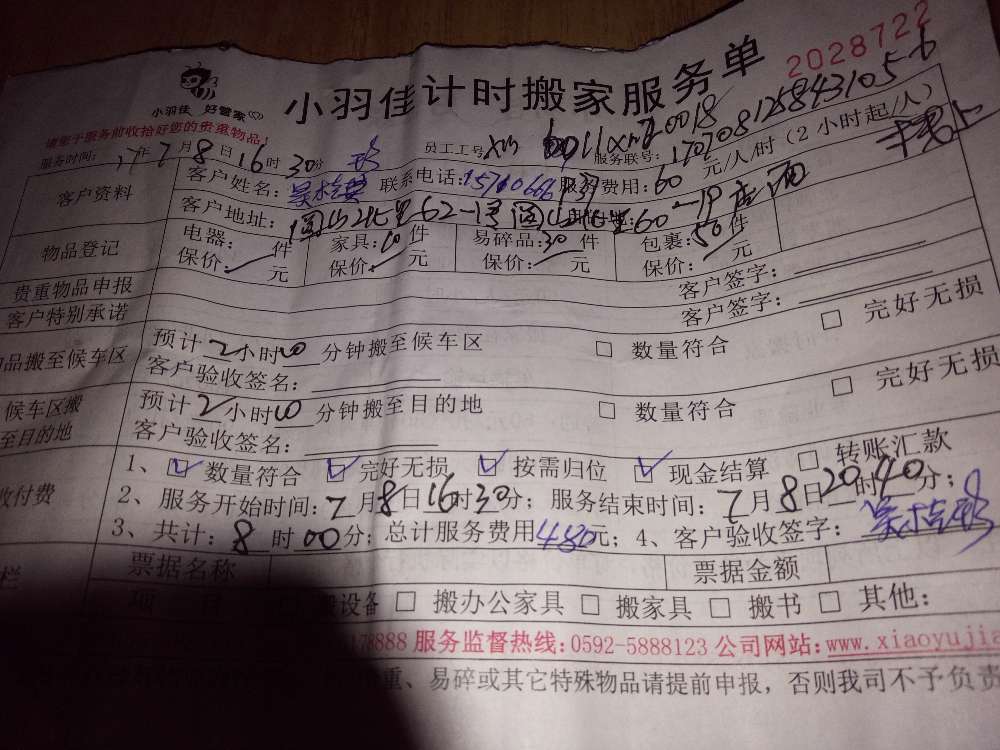 小羽佳 好管家
小羽佳计时搬家服务单
2028722
请您于服务前收拾好您的贵重物品!
员工工号: 服务联号: 170708125843105-6
服务时间: 17年7月8日16时30分
客户资料
客户姓名: 联系电话: 服务费用: 60 元/人/时 (2小时起/人)
客户地址:
物品登记
电器: 件 家具: 10 件 易碎品: 30 件 包裹: 50 件
保价: 元 保价: 元 保价: 元 保价: 元
贵重物品申报 客户签字:
客户特别承诺 客户签字:
品搬至候车区
预计2小时00分钟搬至候车区 □ 数量符合 □ 完好无损
客户验收签名:
候车区搬
至目的地
预计2小时00分钟搬至目的地 □ 数量符合 □ 完好无损
客户验收签名:
收付费
1、☑数量符合 ☑完好无损 ☑按需归位 ☑现金结算 □ 转账汇款
2、服务开始时间: 7月8日16时30分; 服务结束时间: 7月8日20时40分;
3、共计: 8时00分; 总计服务费用480元; 4、客户验收签字:
栏
票据名称 票据金额
项 目 搬设备 □ 搬办公家具 □ 搬家具 □ 搬书 □ 其他:
178888 服务监督热线:0592-5888123 公司网站:www.xiaoyujia
重、易碎或其它特殊物品请提前申报，否则我司不予负责